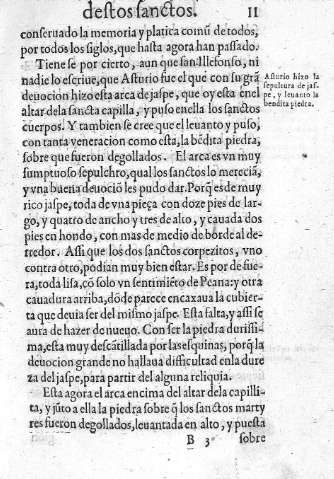 destos sanctos. 11
conseruado la memoria y platica comũ de todos,
por todos los siglos, que hasta agora han passado.
Tiene se por cierto, aun que san Illefonso, ni
nadie lo escriue, que Asturio fue el que con su grã
deuocion hizo esta arca de jaspe, que oy esta en el
altar de la sancta capilla, y puso en ella los sanctos
cuerpos. Y tambien se cree que el leuanto y puso,
con tanta veneracion como esta, la bẽdita piedra,
sobre que fueron degollados. El arca es vn muy
sumptuoso sepulchro, qual los sanctos lo mereciã,
y vna buena deuociõ les pudo dar. Porq̃ es de muy
rico jaspe, toda de vna pieça con doze pies de lar-
go, y quatro de ancho y tres de alto, y cauada dos
pies en hondo, con mas de medio de borde al de-
rredor. Assi que los dos sanctos corpezitos, vno
contra otro, podian muy bien estar. Es por de fue-
ra, toda lisa, cõ solo vn sentimiẽto de Peana: y otra
cauadura arriba, dõde parece encaxaua la cubier-
ta que deuia ser del mismo jaspe. Esta falta, y assi se
aura de hazer de nueuo. Con ser la piedra durissi-
ma, esta muy descãtillada por las esquinas, porq̃ la
deuocion grande no hallaua difficultad en la dure
za del jaspe, para partir del alguna reliquia.
Esta agora el arca encima del altar de la capilli-
ta, y jũto a ella la piedra sobre q̃ los sanctos marty
res fueron degollados, leuantada en alto, y puesta
B 3 sobre
Asturio hizo la
sepultura de jas
pe, y leuanto la
bendita piedra.